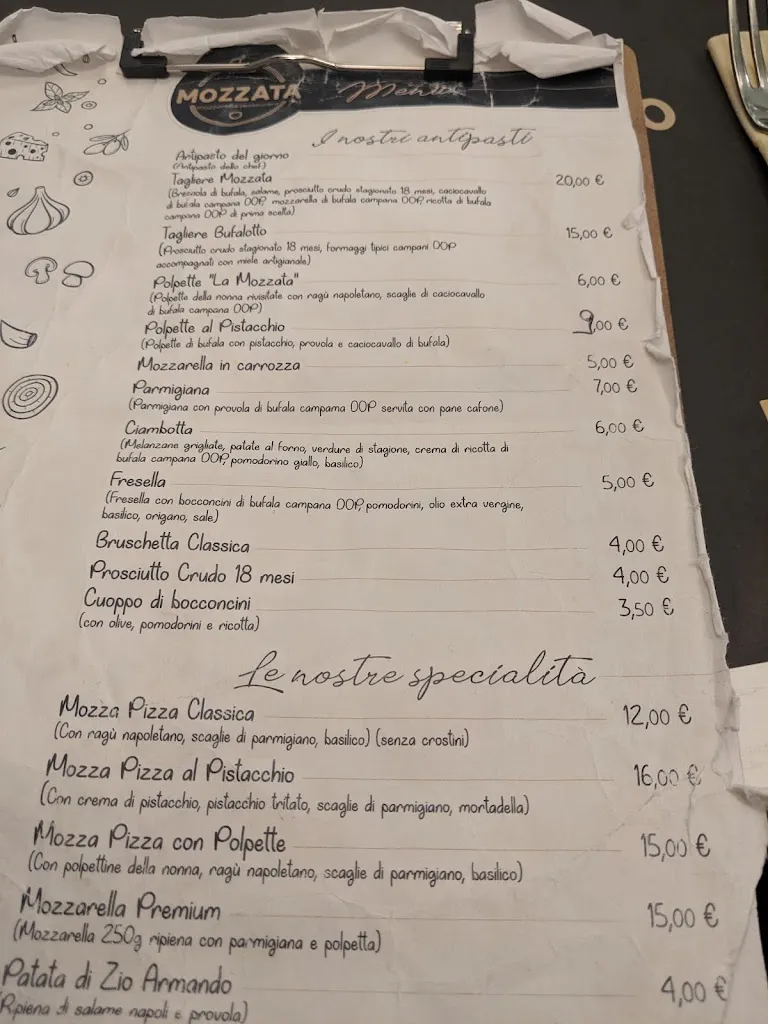 MOZZATA
Menu
I nostri antipasti
Antipasto del giorno
(Antipasto dello chef)
Tagliere Mozzata 20,00 €
(Bresaola di bufala, salame, prosciutto crudo stagionato 18 mesi, caciocavallo
di bufala campana DOP, mozzarella di bufala campana DOP, ricotta di bufala
campana DOP di prima scelta)
Tagliere Bufalotto 15,00 €
(Prosciutto crudo stagionato 18 mesi, formaggi tipici campani DOP
accompagnati con miele artigianale)
Polpette "La Mozzata" 6,00 €
(Polpette della nonna rivisitate con ragù napoletano, scaglie di caciocavallo
di bufala campana DOP)
Polpette al Pistacchio 9,00 €
(Polpette di bufala con pistacchio, provola e caciocavallo di bufala)
Mozzarella in carrozza 5,00 €
Parmigiana 7,00 €
(Parmigiana con provola di bufala campama DOP servita con pane cafone)
Ciambotta 6,00 €
(Melanzane grigliate, patate al forno, verdure di stagione, crema di ricotta di
bufala campana DOP, pomodorino giallo, basilico)
Fresella 5,00 €
(Fresella con bocconcini di bufala campana DOP, pomodorini, olio extra vergine,
basilico, origano, sale)
Bruschetta Classica 4,00 €
Prosciutto Crudo 18 mesi 4,00 €
Cuoppo di bocconcini 3,50 €
(con olive, pomodorini e ricotta)
Le nostre specialità
Mozza Pizza Classica 12,00 €
(Con ragù napoletano, scaglie di parmigiano, basilico) (senza crostini)
Mozza Pizza al Pistacchio 16,00 €
(Con crema di pistacchio, pistacchio tritato, scaglie di parmigiano, mortadella)
Mozza Pizza con Polpette 15,00 €
(Con polpettine della nonna, ragù napoletano, scaglie di parmigiano, basilico)
Mozzarella Premium 15,00 €
(Mozzarella 250g ripiena con parmigiana e polpetta)
Patata di Zio Armando 4,00 €
(Ripiena di salame napoli e provola)